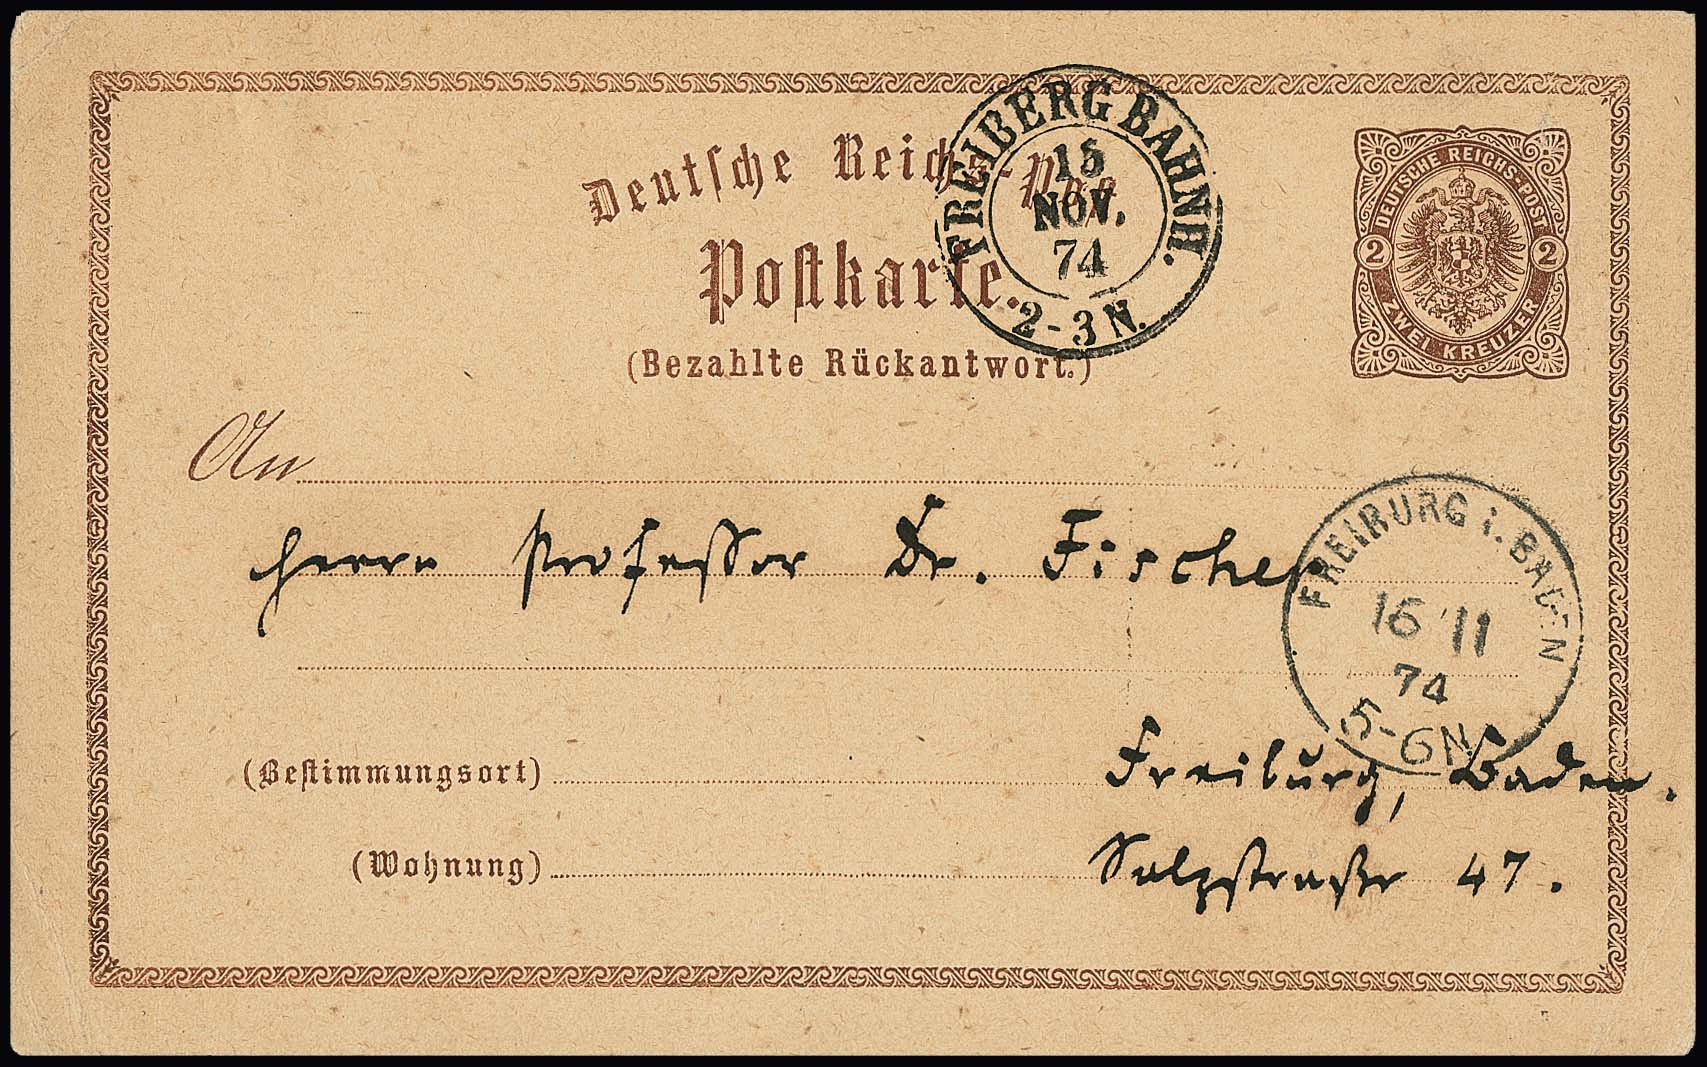 Deutsche Reichs-Post
Postkarte.
(Bezahlte Rückantwort.)
FREIBERG BAHNH.
15
NOV.
74
2-3 N.
DEUTSCHE REICHS-POST
2 2
ZWEI KREUZER
An
Herrn Professor Dr. Fischer
FREIBURG i. BADEN
16 11
74
5-6N
(Bestimmungsort) Freiburg, Baden.
(Wohnung) Salzstraße 47.